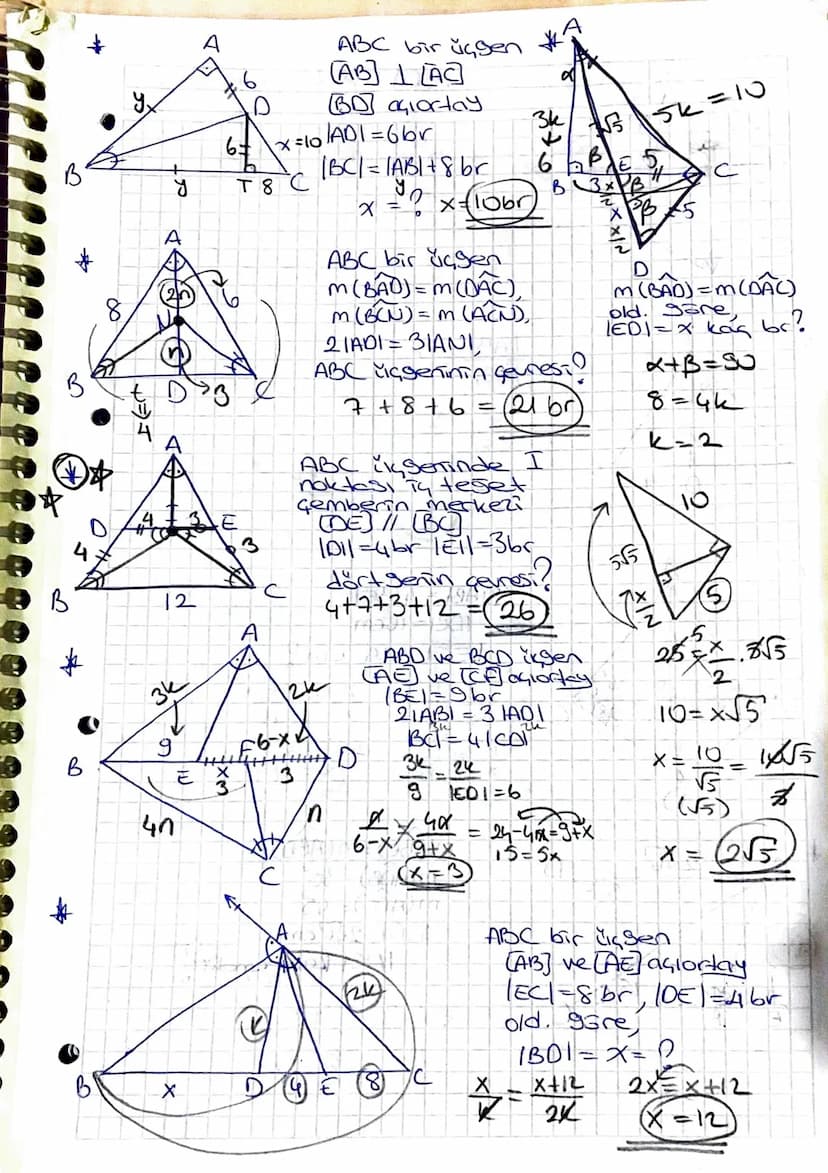 A
6
D
y
6
x=10
B
y
T
8
C
ABC bir üçgen
[AB] ⊥ [AC]
[BD] açıortay
|AD|=6br
|BC|=|AB|+8br
y
x = ? x=10br
A
α
x
5k = 10
3k
√5
6
β
E
5
C
B
3
x
β
x/2
x
β
5
x/2
D
m(BAD)=m(DAC)
old. göre,
|ED|=x kaç br?
α+β=90
8=4k
k=2
10
5√5
x/2
5
25=x/2.5√5
5
10=x√5
x=10/√5=10√5/5
(√5)
x=2√5
A
8
2n
6
N
n
B
t
D
3
C
4
ABC bir üçgen
m(BAD)=m(DAC),
m(BCN)=m(ACN),
2|AD|=3|AN|,
ABC üçgeninin çevresi?
7+8+6=21br
A
D
4
3
E
4
3
B
12
C
ABC üçgeninde I
noktası iç teğet
çemberin merkezi
[DE] // [BC]
|DI|=4br |EI|=3br
dörtgenin çevresi?
4+7+3+12=26
A
3k
2k
9
F
6-x
B
E
x
3
3
D
4n
n
C
ABD ve BCD üçgen
[AE] ve [CF] açıortay
|BE|=9br
2|AB|=3|AD|
3k
2k
|BC|=4|CD|
3k/9=2k/|ED|=6
n/6-x 4n/9+x = 24-4x=9+x
15=5x
x=3
A
k
2k
B
x
D
4
E
8
C
ABC bir üçgen
[AB] ve [AE] açıortay
|EC|=8br, |DE|=4br
old. göre,
|BD|=x=?
x/k=x+12/2k
2x=x+12
x=12